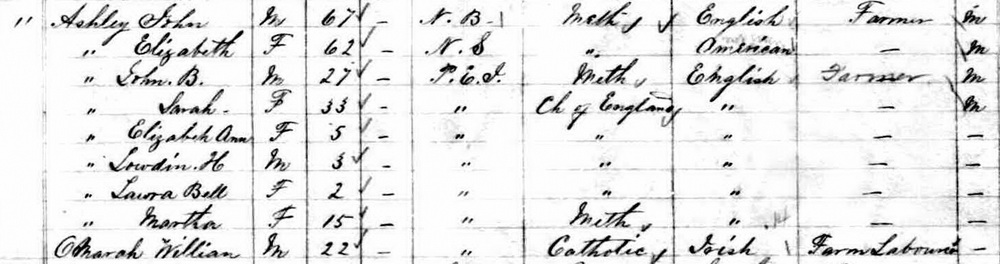 " Ashley John M 67 – N. B. Meth English Farmer M
" Elizabeth F 62 – N. S " American — M
" John. B. M 27 – P. E. I. Meth English Farmer M
" Sarah F 33 – " Ch of England " — M
" Elizabeth Ann F 5 – " " " — –
" Lowdin. H M 3 – " " " — –
" Laura Bell F 2 – " " " — –
" Martha F 15 – " Meth " — –
William M 22 – " Catholic Irish Farm –